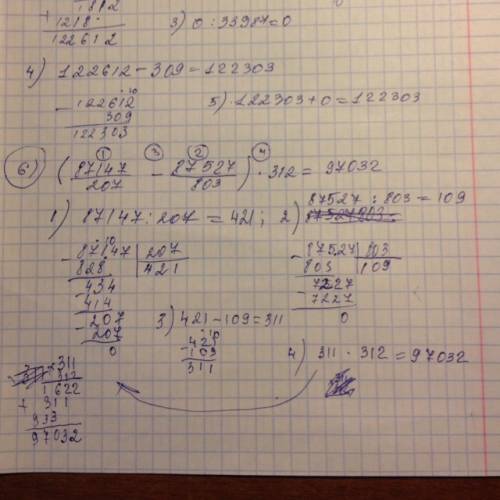 1812
+ 1218
122612
3) 0 : 33987=0
4) 122612 - 309 = 122303
- 122612
309
122303
5) 122303 + 0 = 122303
6) (87147/207 - 87527/803) · 312 = 97032
1 3 2 4
1) 87147 : 207 = 421; 2) 87527 : 803 = 109
- 87147 | 207
828 | 421
- 434
414
- 207
207
0
- 87527 | 803
803 | 109
- 7227
7227
0
3) 421 - 109 = 311
- 421
109
311
4) 311 · 312 = 97032
× 311
312
1 622
+ 311
933
97032